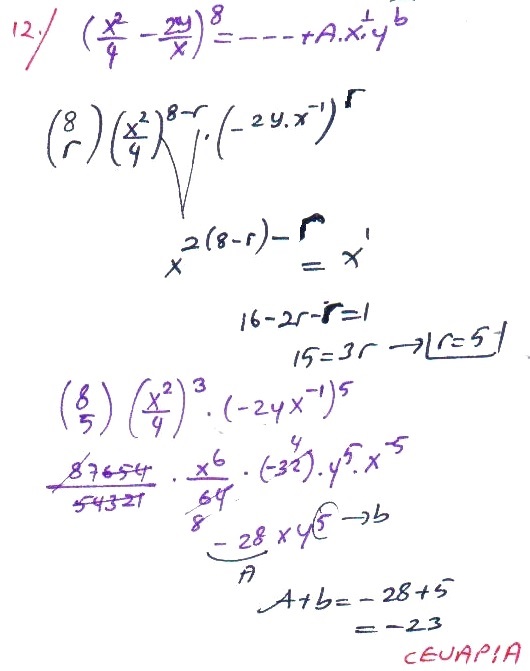 12./ (x²/4 - 2y/x)⁸ = ---- + A.x¹.yᵇ
(8 r) (x²/4)⁸⁻ʳ . (-2y.x⁻¹)ʳ
x^(2(8-r)-r) = x¹
16-2r-r=1
15=3r → r=5
(8 5) (x²/4)³ . (-2yx⁻¹)⁵
87654/54321 . x⁶/64 . (-32) . y⁵ . x⁻⁵
8 4
-28 x y⁵ → b
A
A+b = -28+5
= -23
CEVAP/A